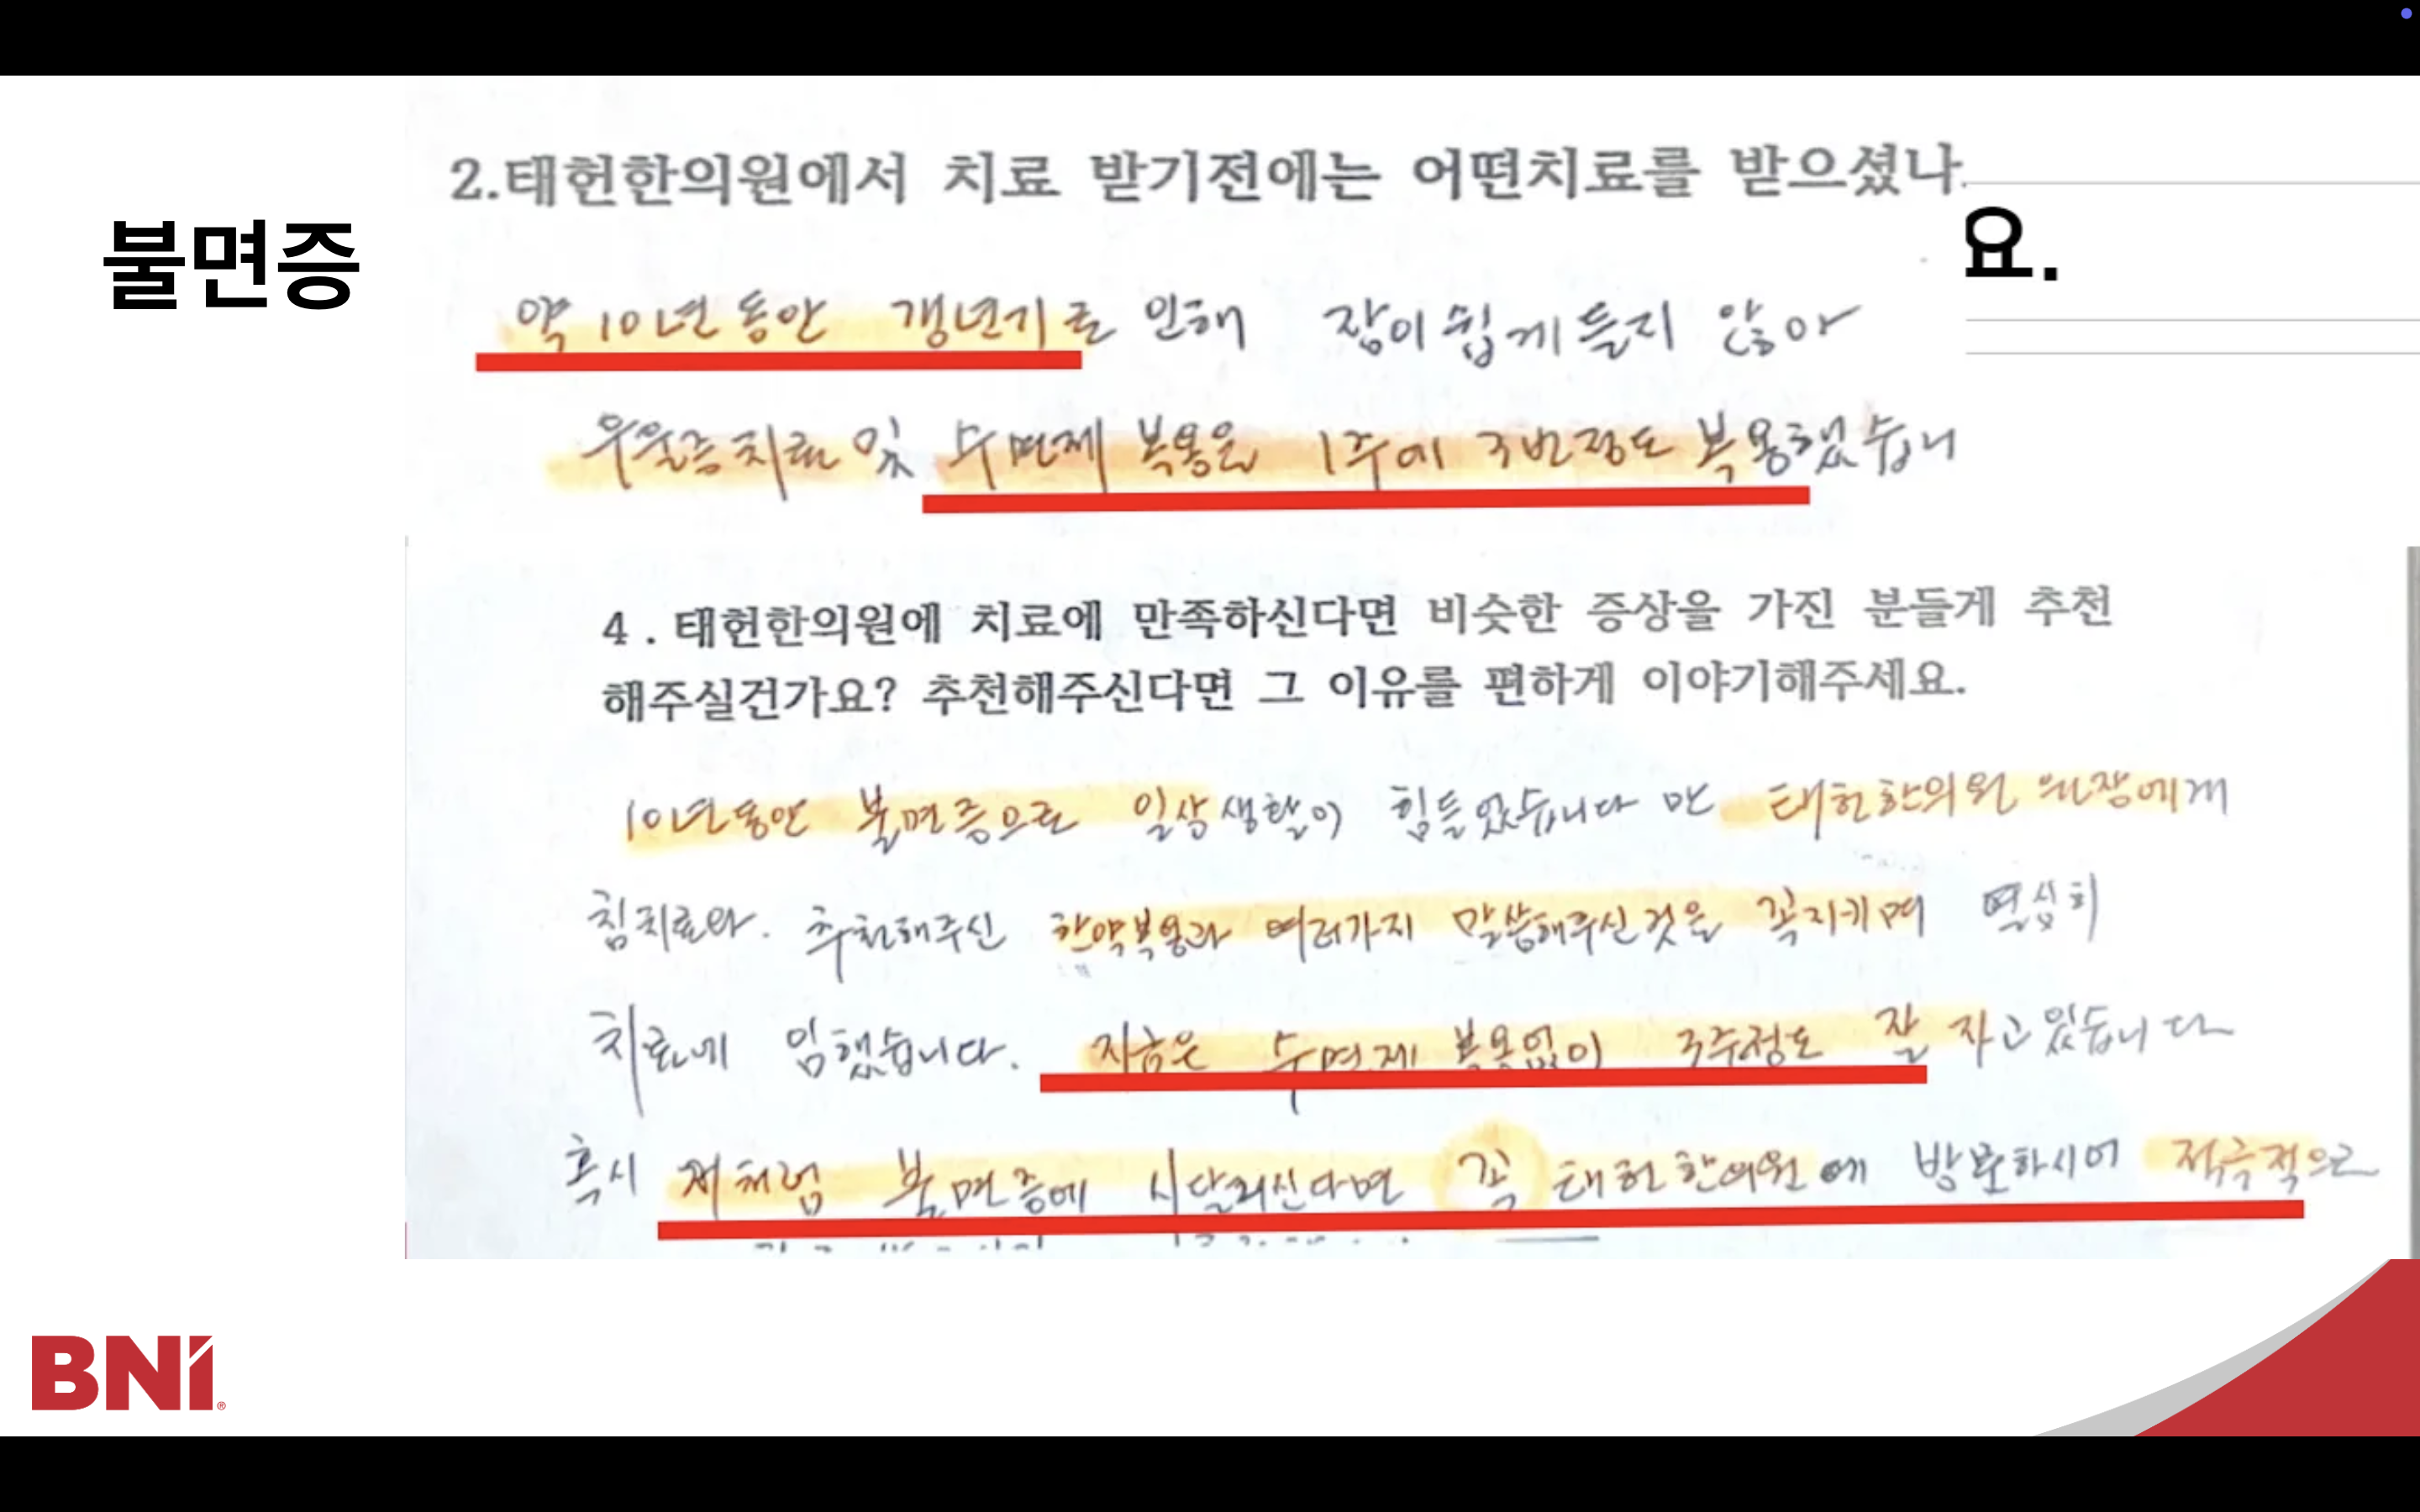 2.태헌한의원에서 치료 받기전에는 어떤치료를 받으셨나
불면증
요.
약 10년 동안 갱년기로 인해 잠이 쉽게 들지 않아
우울증치료 및 수면제 복용을 1주에 3번정도 복용했습니
4 . 태헌한의원에 치료에 만족하신다면 비슷한 증상을 가진 분들게 추천
해주실건가요? 추천해주신다면 그 이유를 편하게 이야기해주세요.
10년동안 불면증으로 일상생활이 힘들었습니다 만 태헌한의원 원장에게
침치료와. 추천해주신 한약복용과 여러가지 말씀해주신것을 꼭지키며 열심히
치료에 임했습니다. 지금은 수면제 복용없이 3주정도 잘 자고있습니다
혹시 저처럼 불면증에 시달리신다면 꼭 태헌한의원에 방문하시어 적극적으로
BNI®